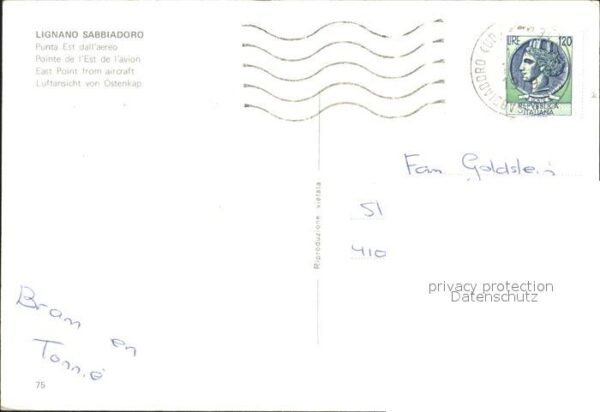 LIGNANO SABBIADORO
Punta Est dall'aereo
Pointe de l'Est de l'avion
East Point from aircraft
Luftansicht von Ostenkap
LIRE 120
ITALIANA
Fam Goldstein
51
410
privacy protection
Datenschutz
Riproduzione vietata
Bram en
75